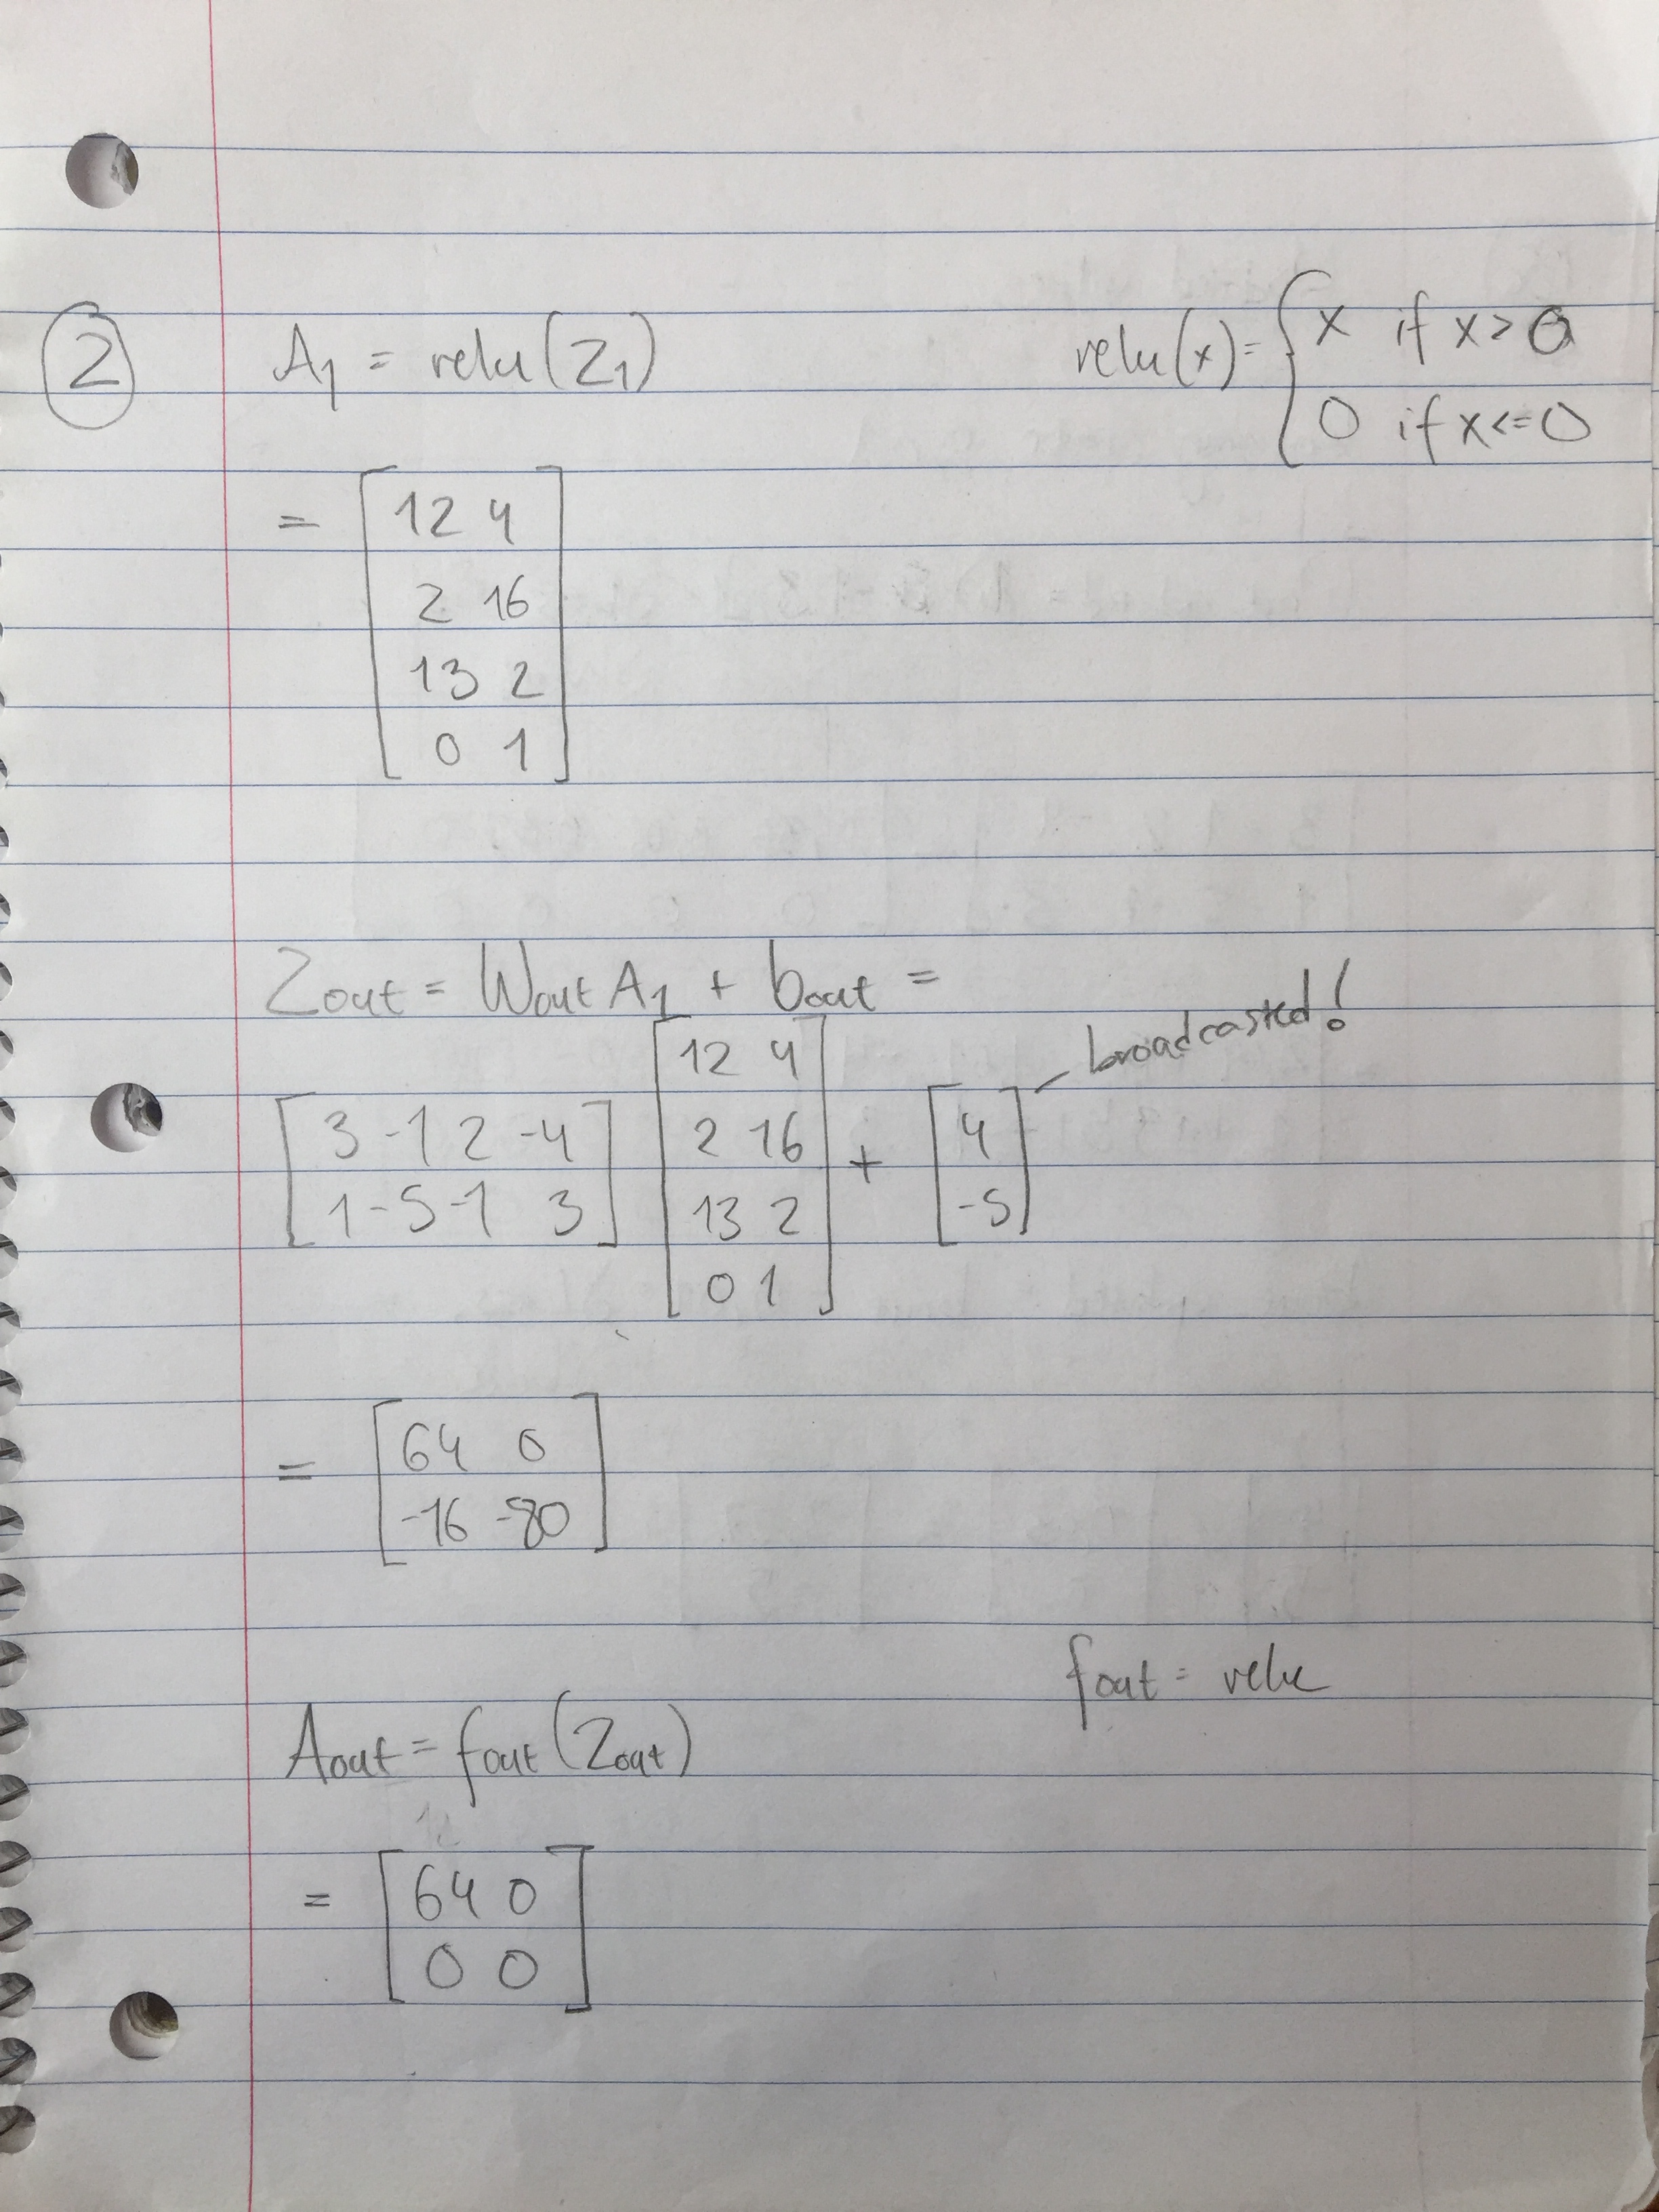 2
A1 = relu(Z1)
relu(x) = { x if x > 0
0 if x <= 0
= [ 12 4
2 16
13 2
0 1 ]
Zout = Wout A1 + bout =
broadcasted!
[ 3 -1 2 -4
1 -5 -1 3 ]
[ 12 4
2 16
13 2
0 1 ]
+ [ 4
-5 ]
= [ 64 0
-16 -80 ]
fout = relu
Aout = fout(Zout)
= [ 64 0
0 0 ]